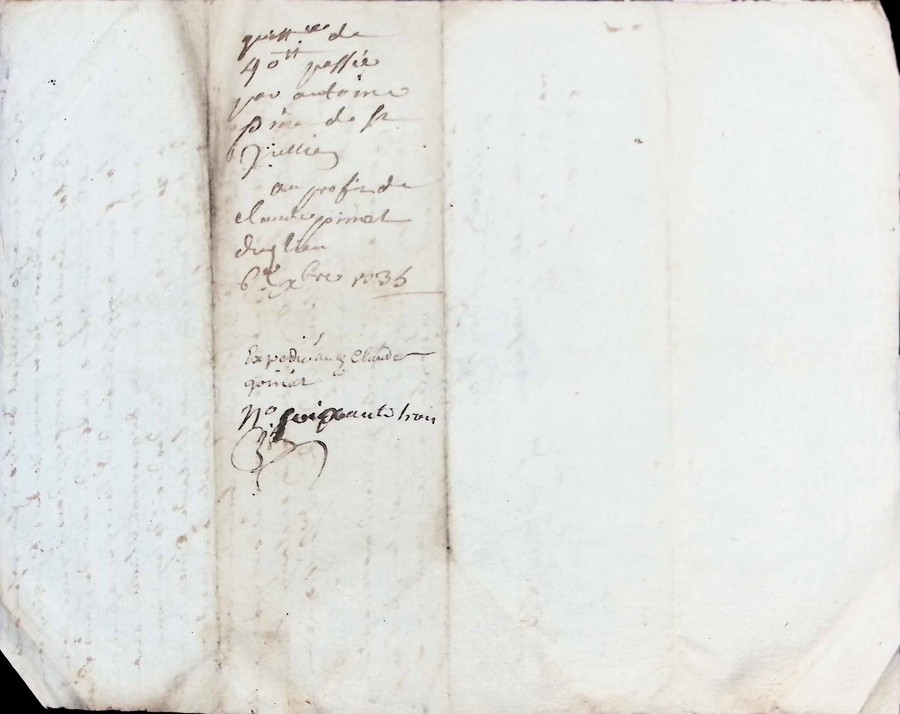 quitt.ce de
40 tt passée
par antoine
de St
Jullien
au profit de
claude pinet
dud lieu
6e xbre 1735
Expedié aud Claude
No soixante trois